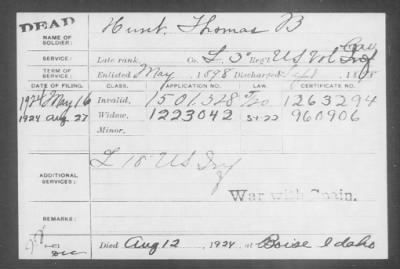 DEAD
NAME OF SOLDIER: Hunt, Thomas B
SERVICE: Late rank, Co. L 3" Reg't US Vol Inf Cav
TERM OF SERVICE: Enlisted May, 1898 Discharged Sept, 1898
DATE OF FILING. CLASS. APPLICATION NO. LAW. CERTIFICATE NO.
1924 May 16 Invalid, 1501328 1263294
1924 Aug. 27 Widow, 1223042 960906
Minor,
ADDITIONAL SERVICES: L 18 US Inf
War with Spain.
REMARKS:
Died Aug 12, 1924, at Boise Idaho